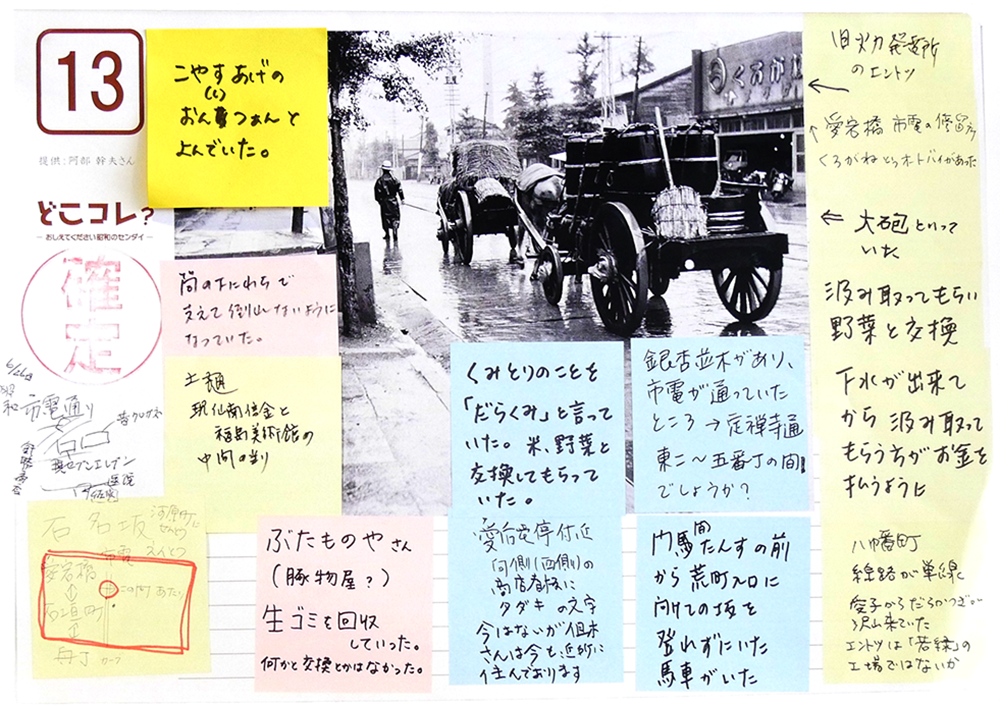 13
提供：阿部 幹夫さん
どこコレ？
― おしえてください昭和のセンダイ ―
確定
市電通り
現セブンイレブン
こやすあげの
(し)
よんでいた。
くろがね
旧火力発電所
のエントツ
愛宕橋 市電の停留所
くろがねというオートバイがあった
大砲といって
いた
汲み取ってもらい
野菜と交換
下水が出来て
から 汲み取って
もらうちがお金を
払うように
八幡町
線路が単線
沢山来ていた
エントツは「若緑」の
工場ではないか
支えて倒れないように
なっていた。
土樋
現仙南信金と
福島美術館の
中間の辺り
くみとりのことを
「だらくみ」と言って
いた。米、野菜と
交換してもらって
いた。
銀杏並木があり、
市電が通っていた
ところ→定禅寺通
東二〜五番丁の間
でしょうか？
石名坂
河原町に
市電
愛宕橋
この町あたり
舟丁
ぶたものやさん
(豚物屋？)
生ゴミを回収
していった。
何かと交換とかはなかった。
愛宕橋停付近
向側(西側)の
商店看板に
タダキ の文字
今はないが但木
さんは今も近所に
住んでおります
間
門馬たんすの前
から 荒町入口に
向けての坂を
登れずにいた
馬車がいた